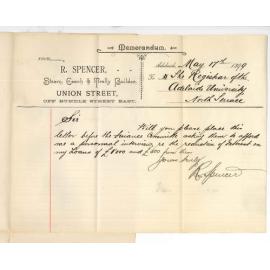 Memorandum.
FROM
R. SPENCER,
Steam, Coach & Trolly Builder,
UNION STREET,
OFF RUNDLE STREET EAST.
Adelaide, May 17th 1899
To The Registrar of the
Adelaide University
North Terrace
Sir
Will you please place this
letter before the Finance Committe asking them to afford
me a personal interview re the reduction of Interest on
my Loans of £1000 and £500 from them
Yours truly
R Spencer